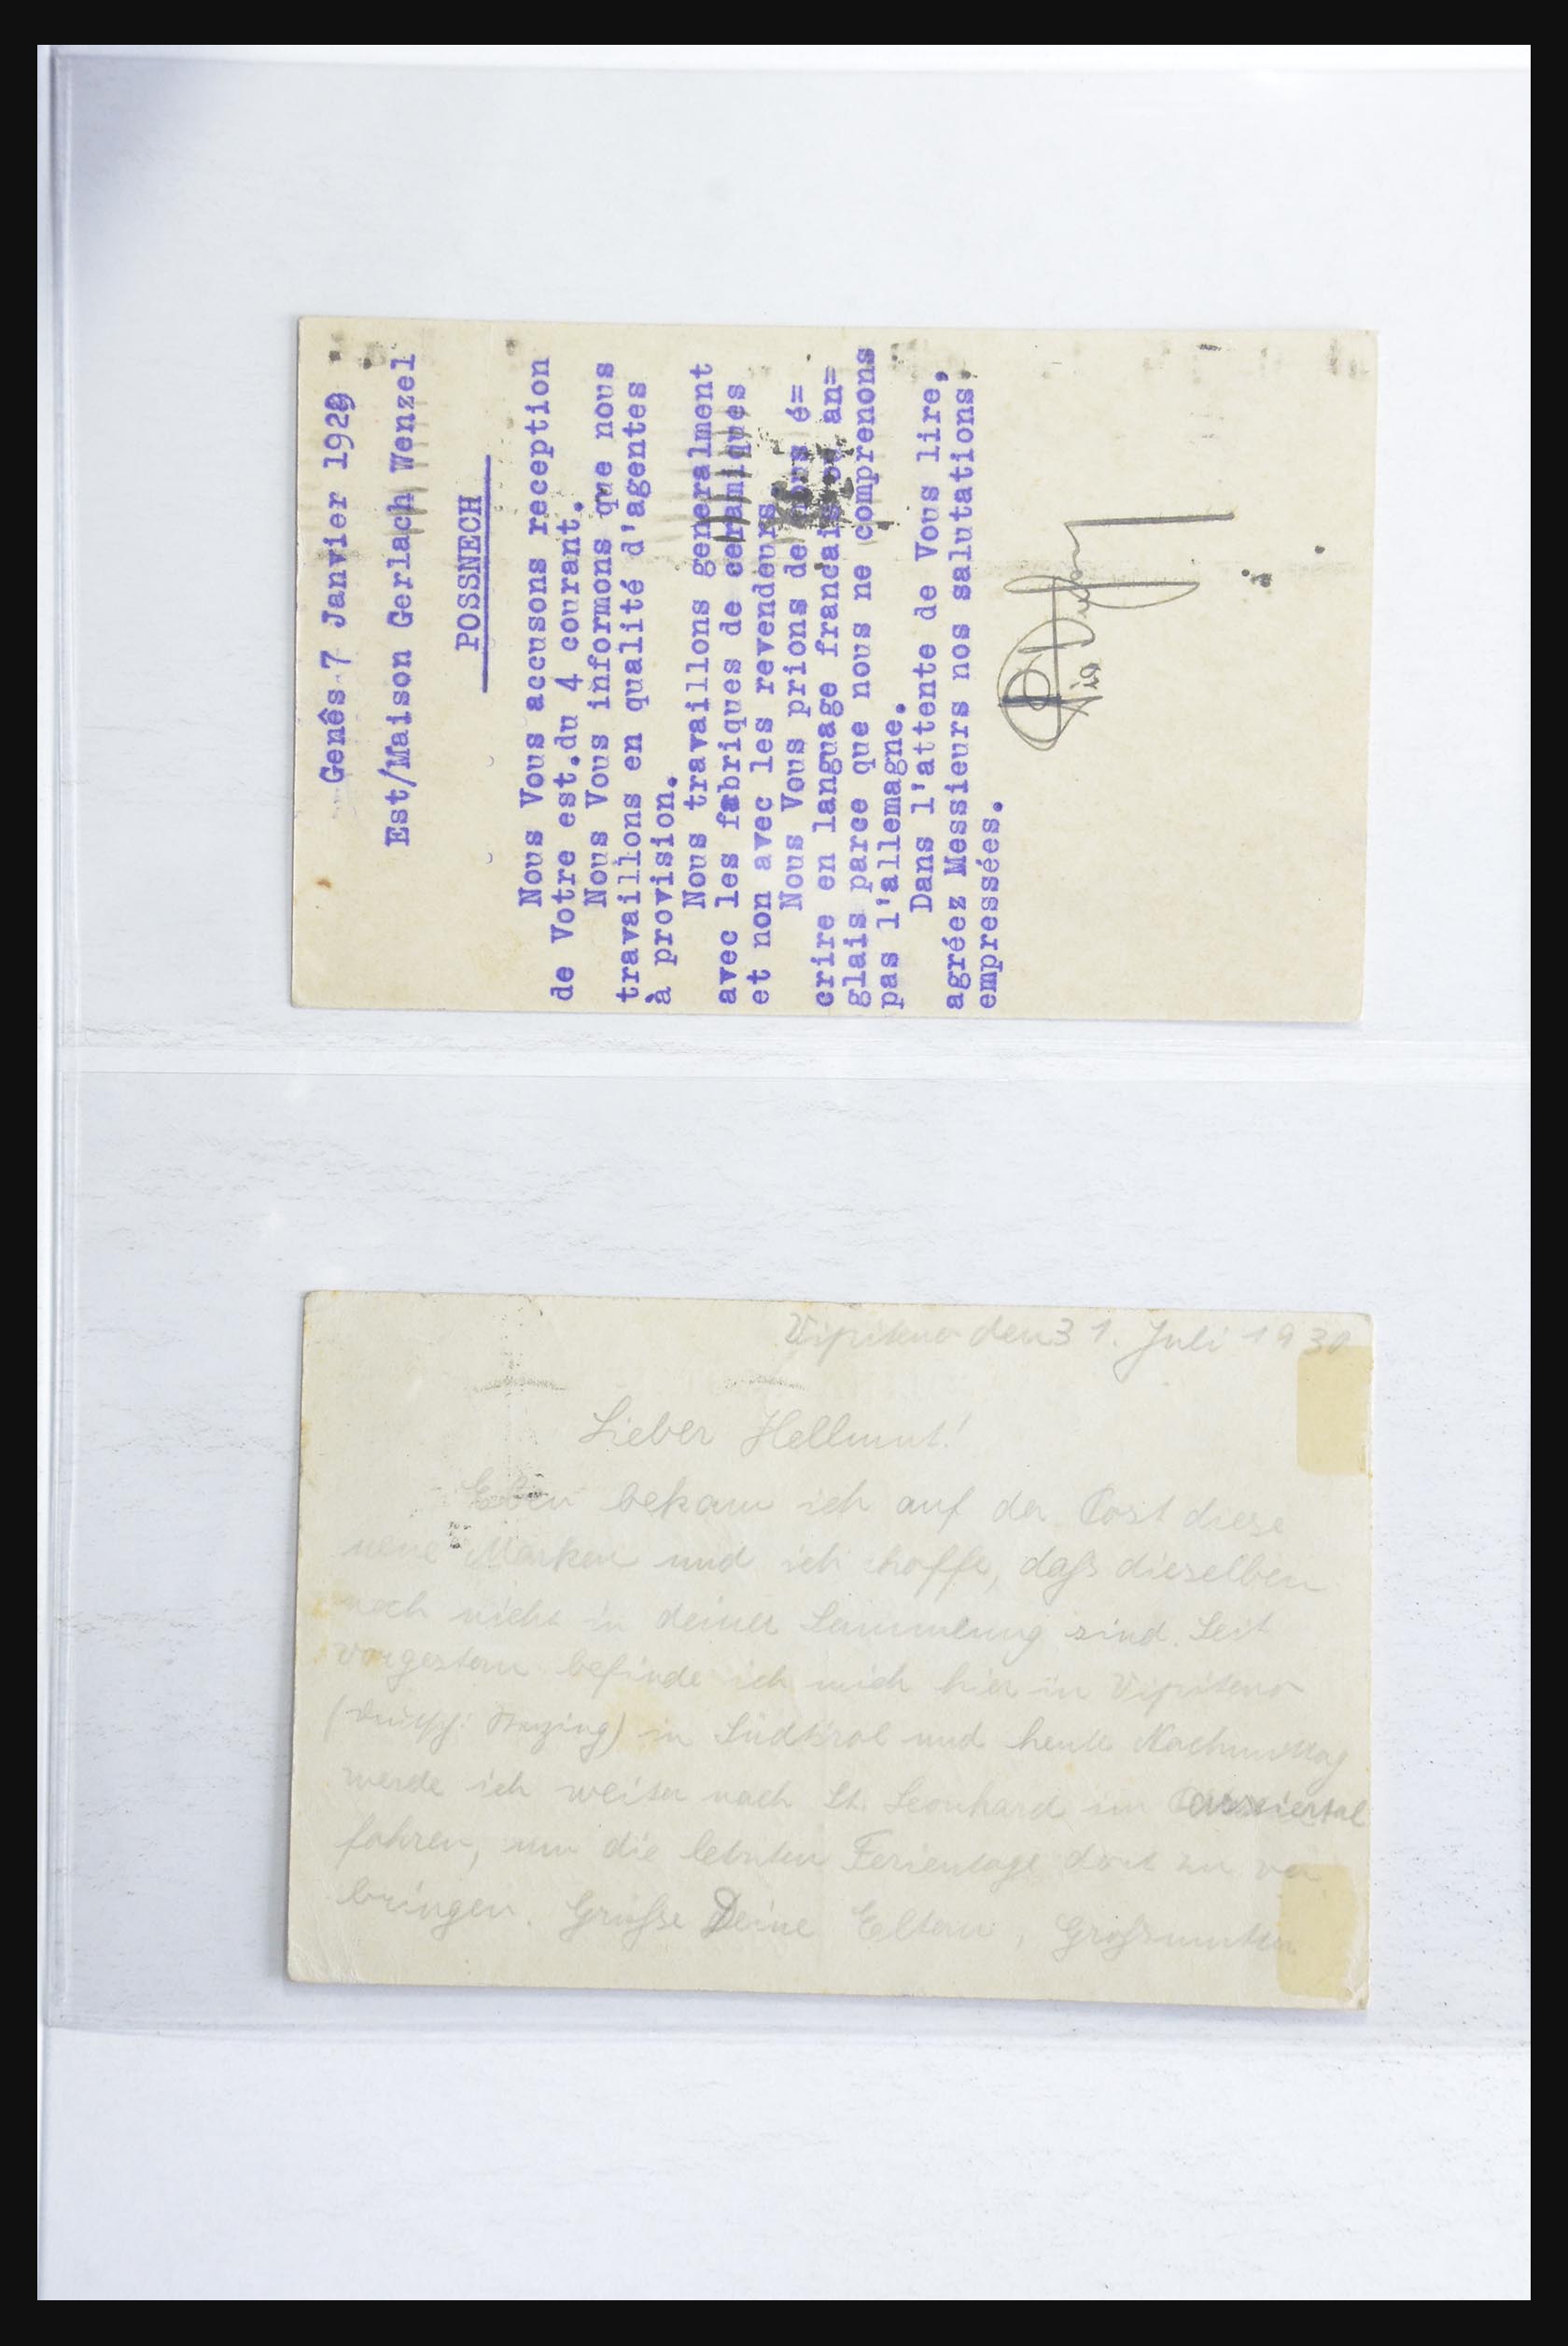 Genês 7 Janvier 1929
Est/Maison Gerlach Wenzel
POSSNECH
Nous Vous accusons reception
de Votre est.du 4 courant.
Nous Vous informons que nous
travaillons en qualité d'agentes
à provision.
Nous travaillons generalment
avec les fabriques de ceramiques
et non avec les revendeurs.
Nous Vous prions de nous é=
crire en language francais ou an=
glais parce que nous ne comprenons
pas l'allemagne.
Dans l'attente de Vous lire,
agréez Messieurs nos salutations.
empressées.
Vipiteno den 31. Juli 1930
Lieber Hellmut!
Eben bekam ich auf der Post diese
neue Marken und ich hoffe, daß dieselben
noch nicht in deiner Sammlung sind. Seit
vorgestern befinde ich mich hier in Vipiteno
(deutsch: Sterzing) in Südtirol und heute Nachmittag
werde ich weiter nach St. Leonhard im Passeiertal
fahren, um die letzten Ferientage dort zu ver
bringen. Grüße Deine Eltern, Großmutter